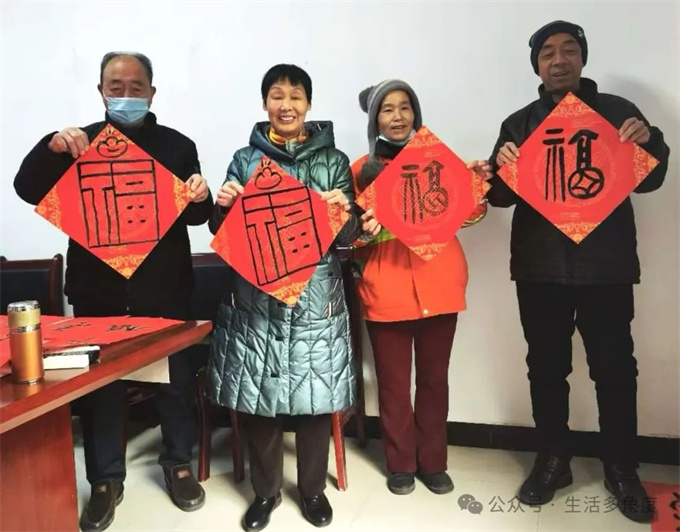 福
福
福
福
公众号·生活多角度